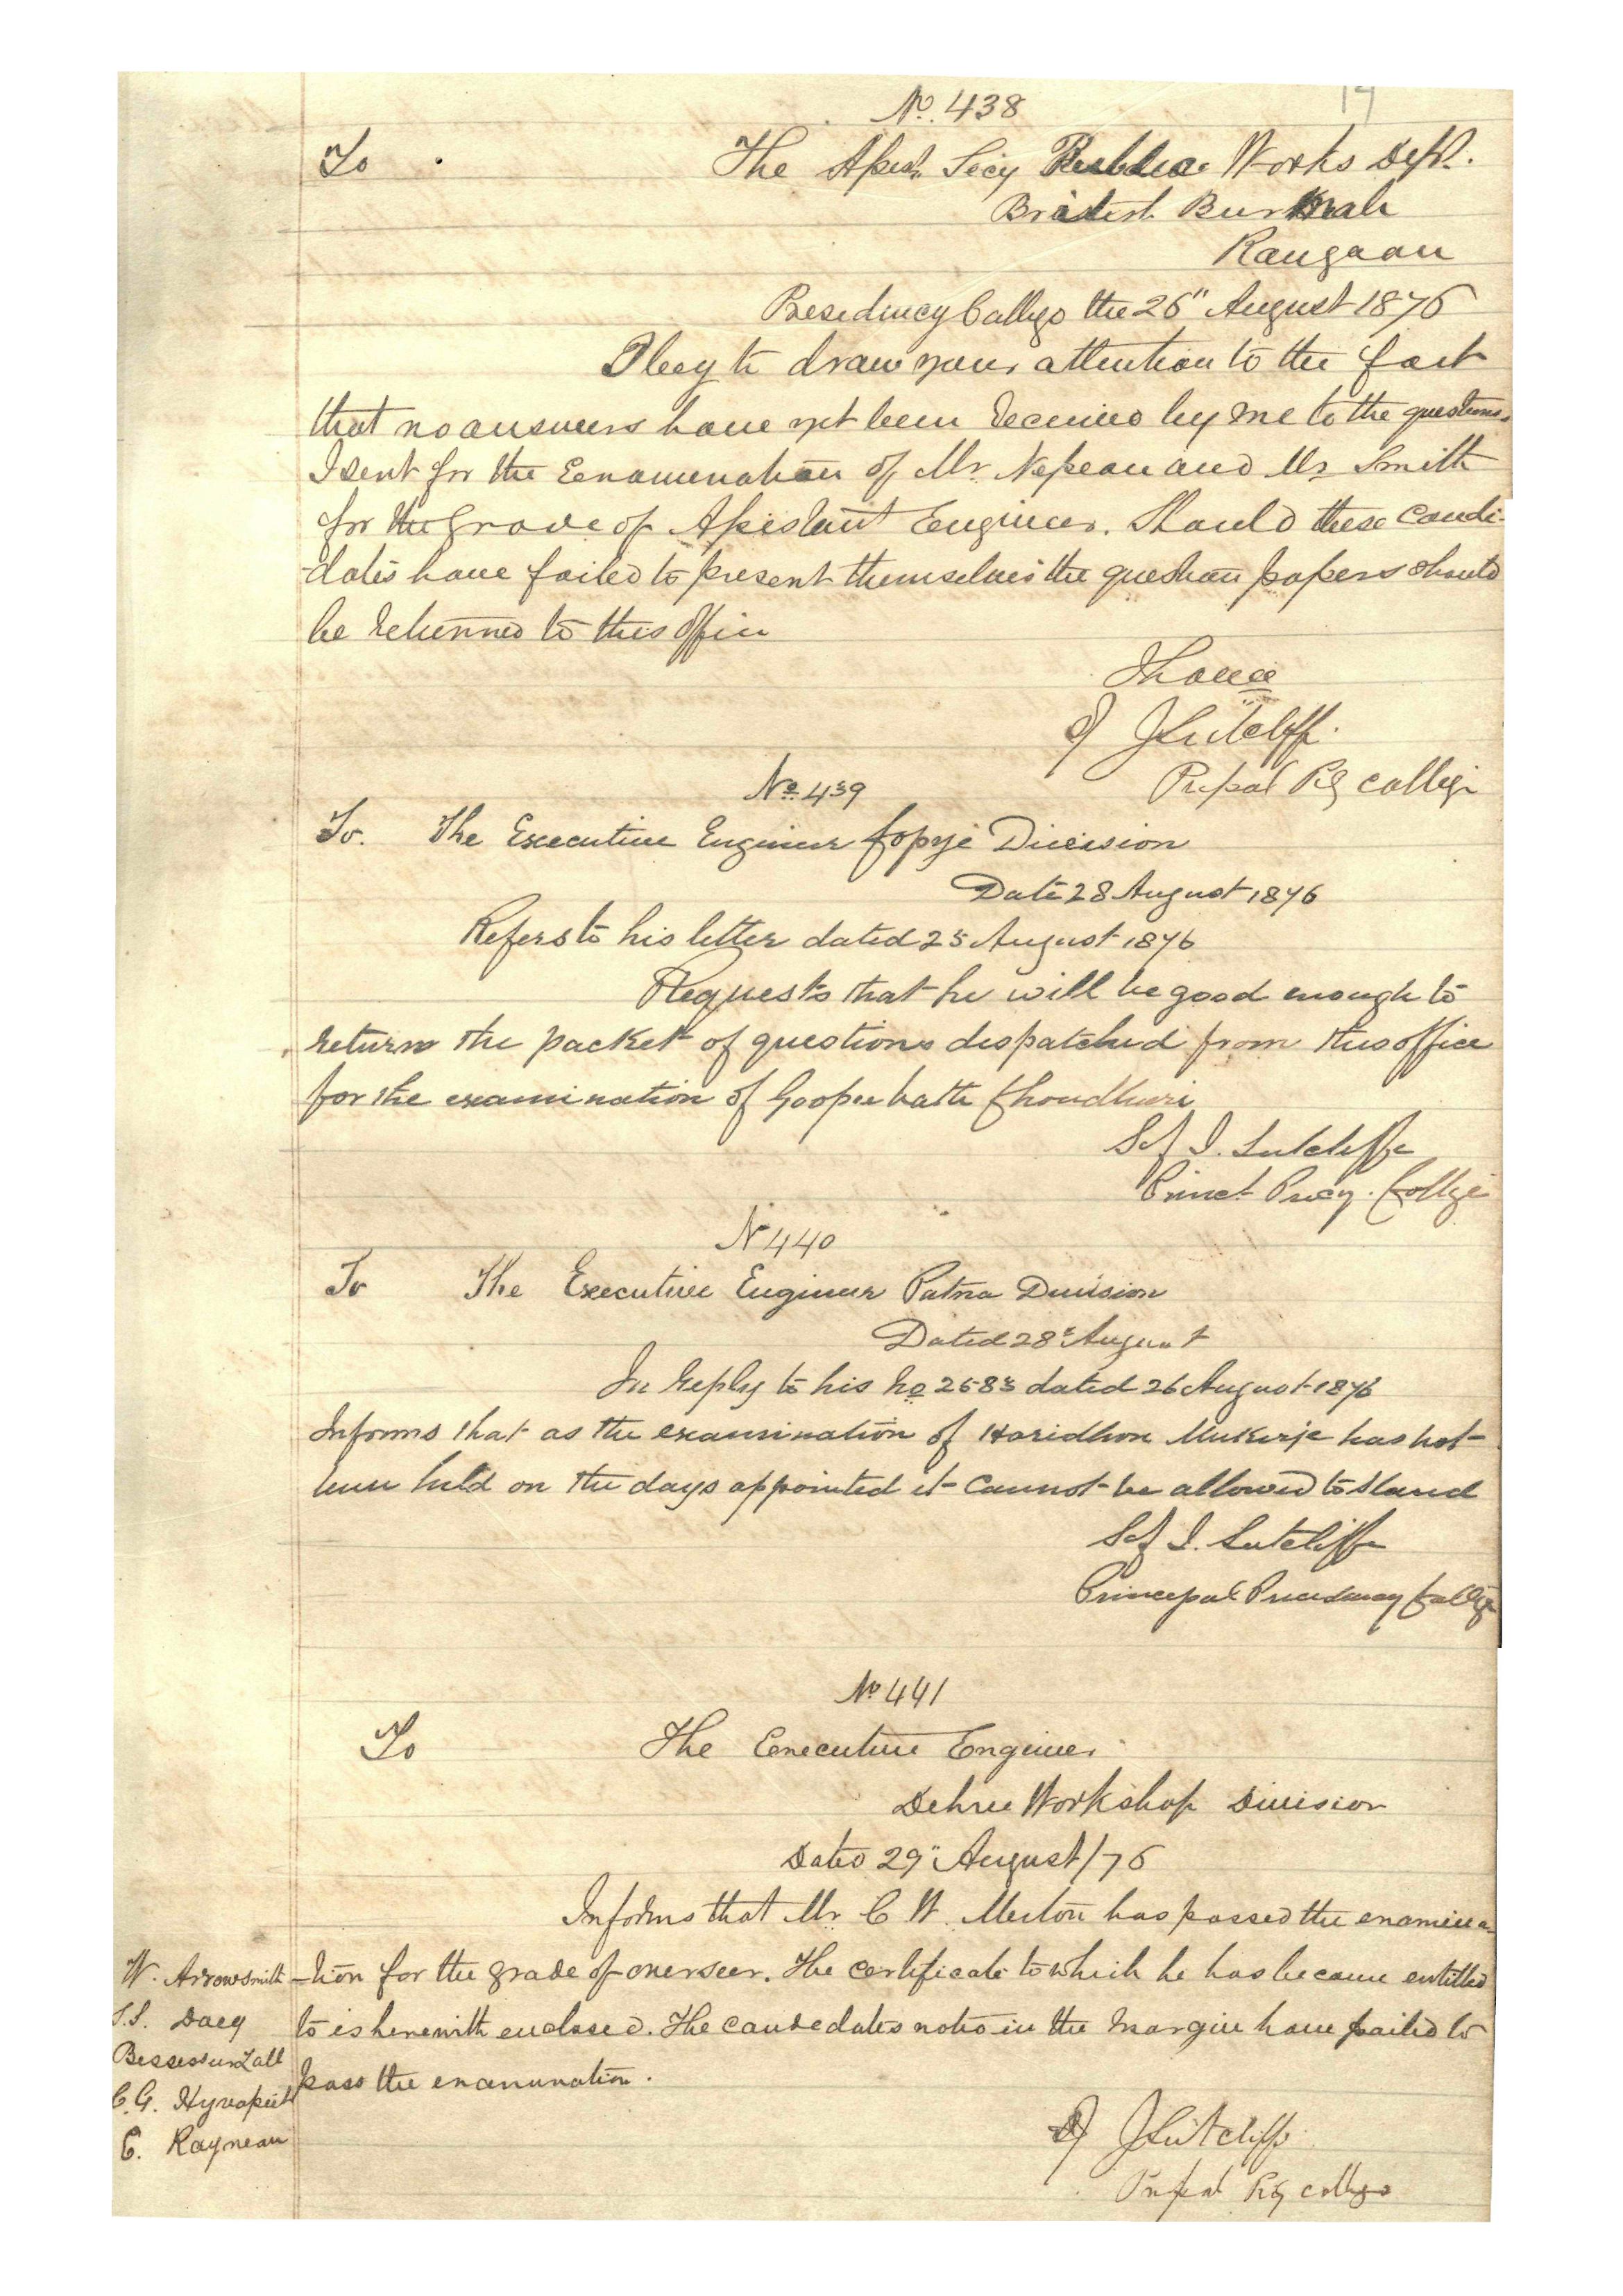 17
No. 438
To The Asst. Secy Public Works Dept.
British Burmah
Rangoon
Presidency College the 26" August 1876
I beg to draw your attention to the fact
that no answers have yet been received by me to the questions
I sent for the Examination of Mr. Nepean and Mr Smith
for the Grade of Assistant Engineer. Should these candi-
-dates have failed to present themselves the question papers should
be returned to this office
I have
Sd J Sutcliff.
Prpal Pcy College
No. 439
To. The Executive Engineer Division
Date 28 August 1876
Refers to his letter dated 25 August 1876
Requests that he will be good enough to
return the packet of questions despatched from this office
for the examination of Choudhuri
Sd J. Sutcliffe
Princl Precy. College
N 440
To The Executive Engineer Patna Division
Dated 28th August
In reply to his No 2583 dated 26 August 1876
Informs that as the examination of Haridhon Mukerje has not
been held on the days appointed it cannot be allowed to stand
Sd J. Sutcliffe
Principal Presidency College
No 441
To The Executive Engineer
Dehree Workshop Division
Dated 29" August/76
Informs that Mr C W. Merton has passed the examina-
W. Arrowsmith -tion for the grade of overseer. The certificate to which he has become entitled
Dacy to is herewith enclosed. The candidates noted in the margin have failed to
Bessessur Lall
pass the examination.
C. G.
E. Rayneau
Sd J Sutcliffe
Prpal Pcy College